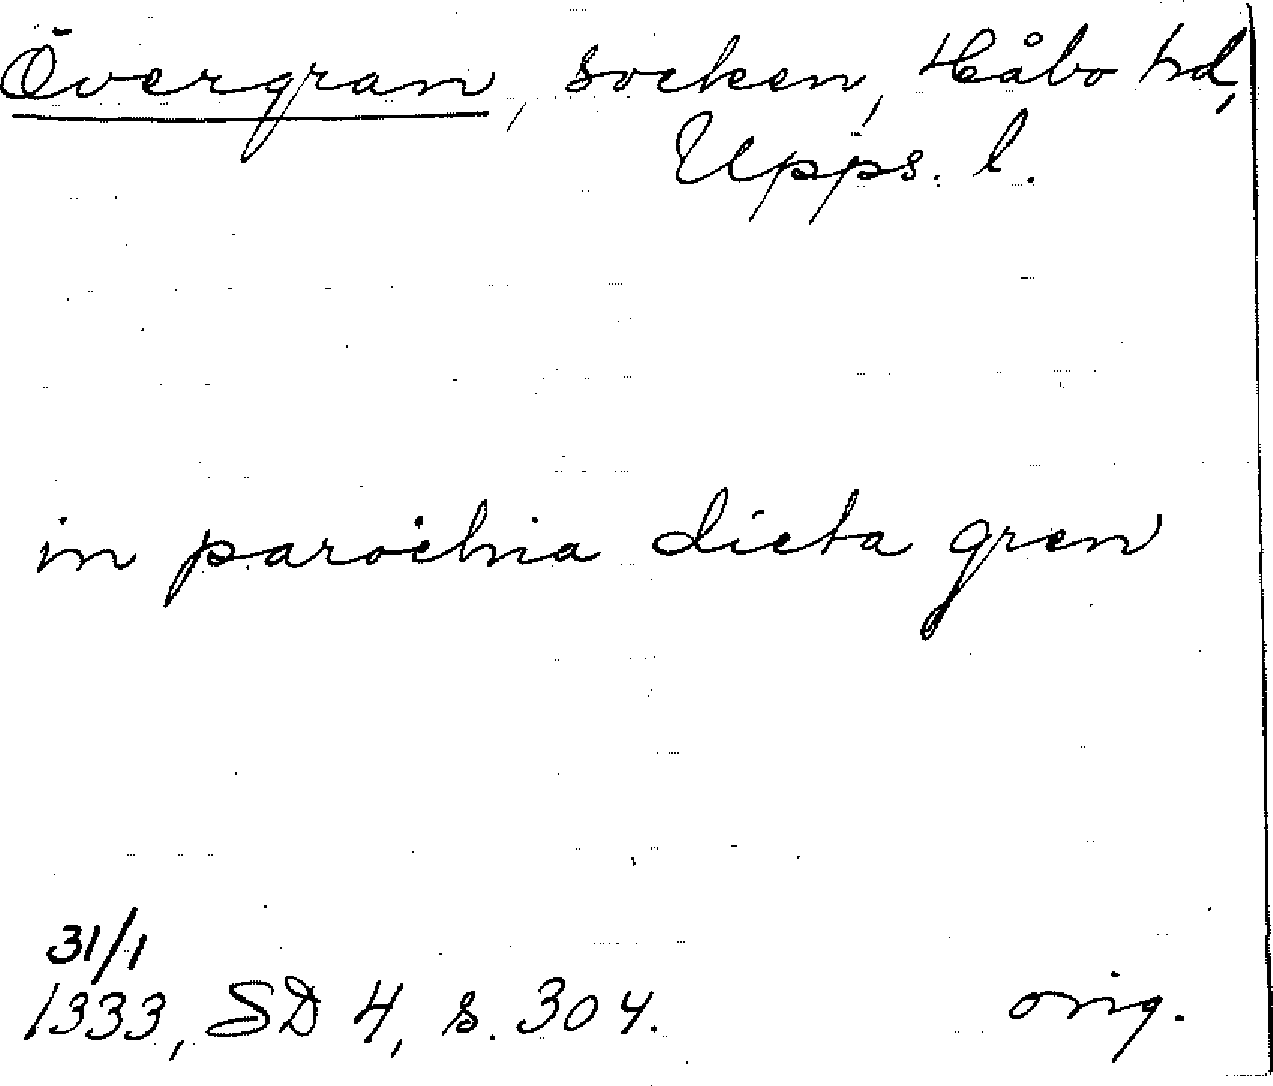 Övergran, socken, Håbo hd,
Upps. l.
in parochia dicta gren
31/1
1333, SD 4, s. 304. orig.